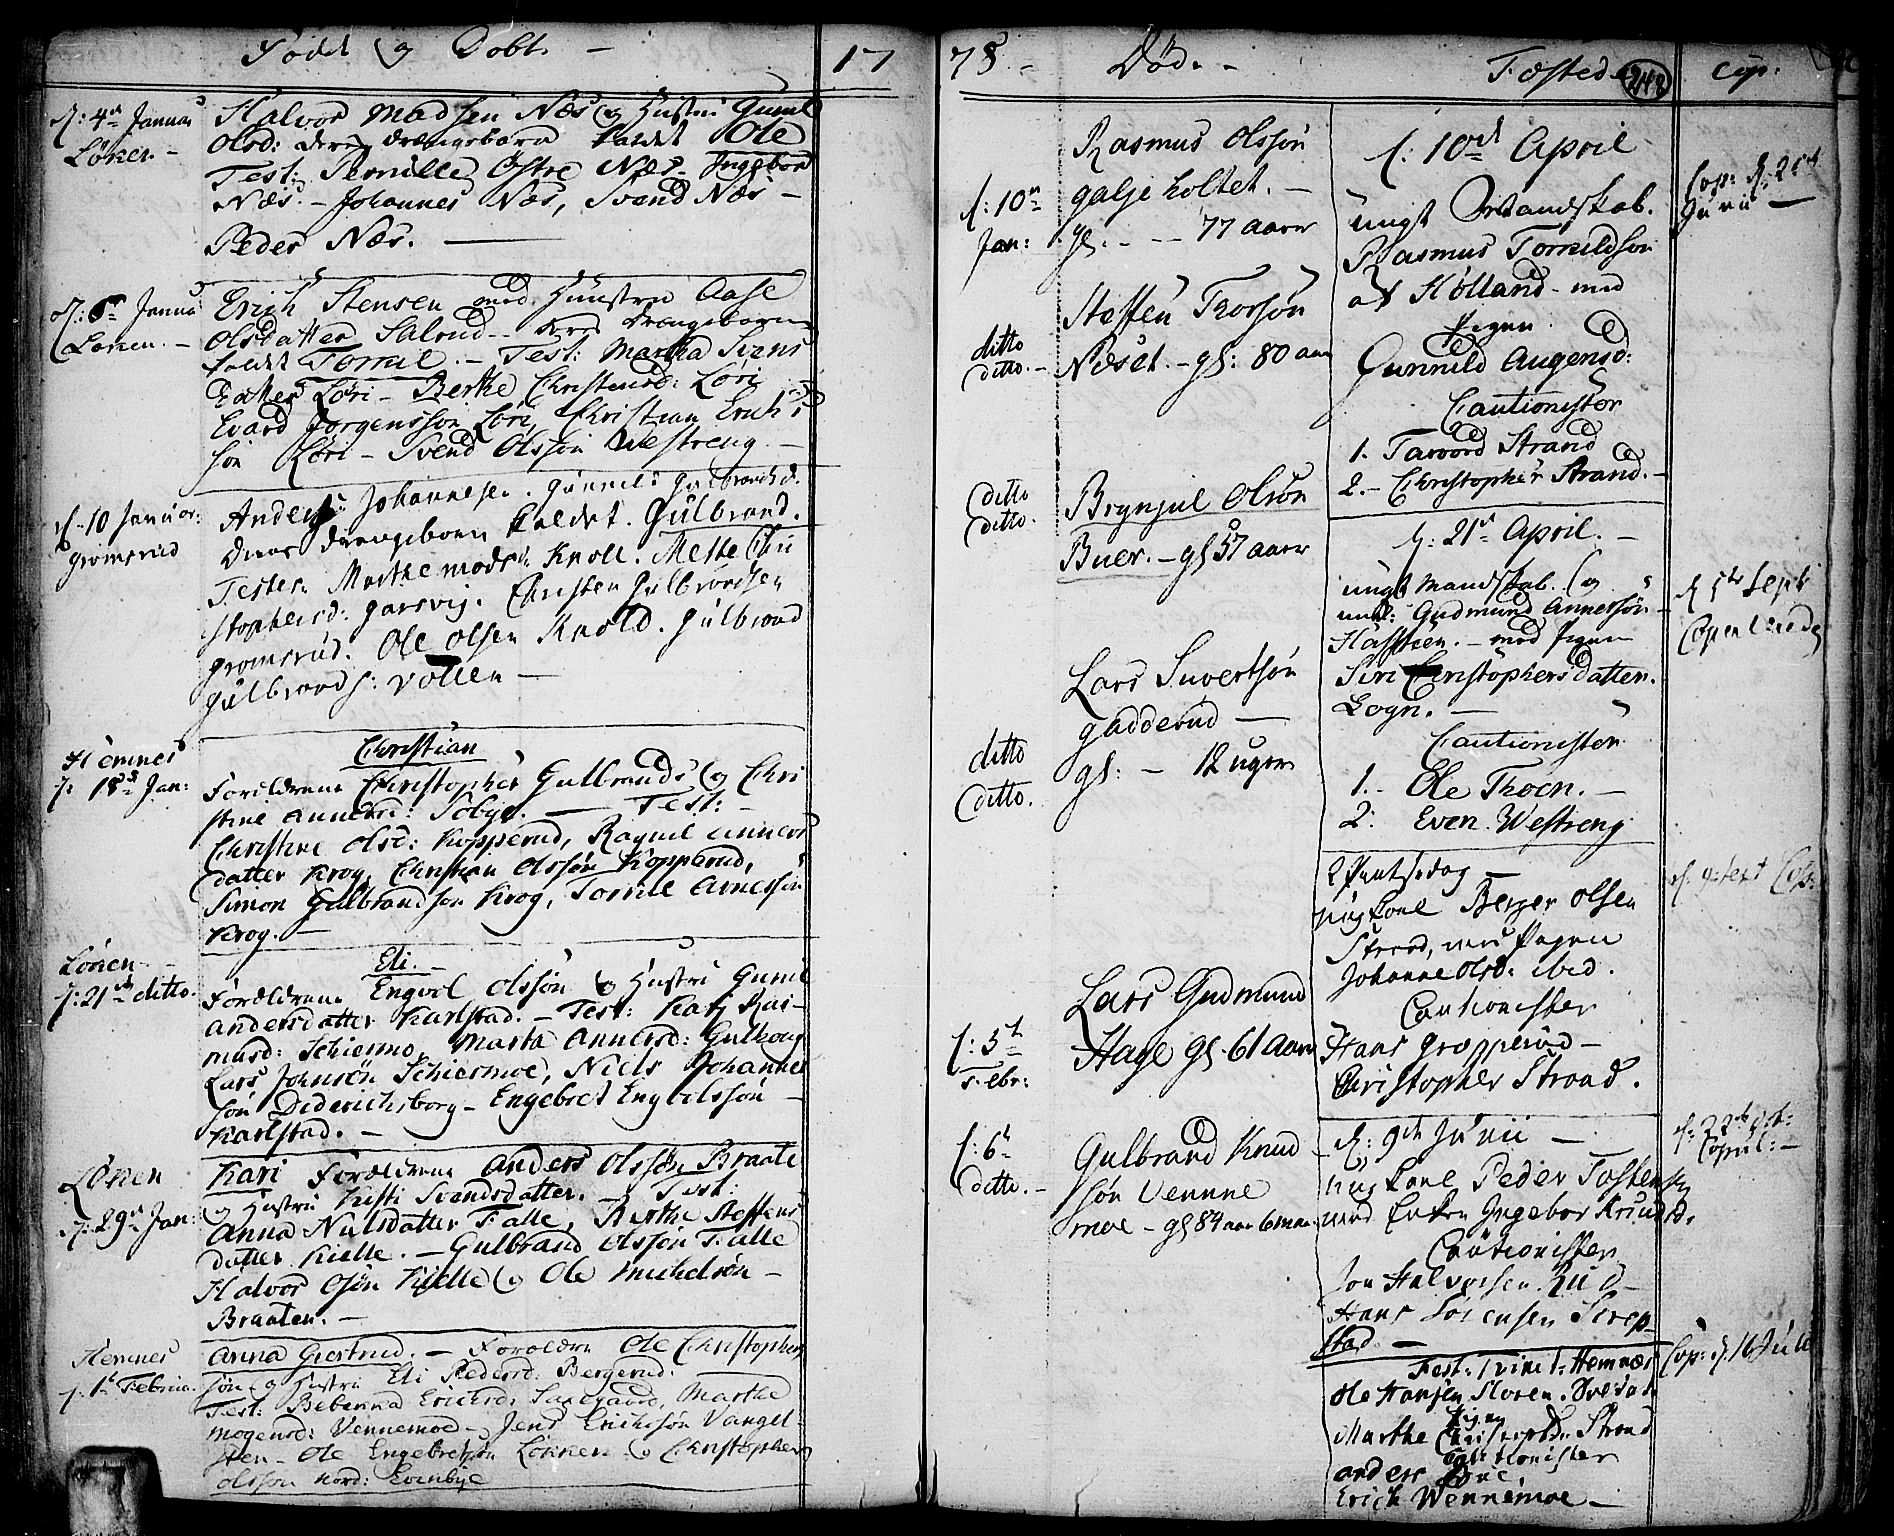 Født og Døbt. —
17
d: 4de Januar
Løken. —
Halvor Madsen Næs og Hustru Gunil
Olsd: deres drængebarn kaldet Ole
Test: Pernille Østre Næs. Ingebor
Næs. — Johannes Næs, Svend Næs —
Peder Næs. —
d: 6te Janua
Løken. —
Erich Stensen med Huustru Aase
Olsdatter Salrud — deres drængebarn
kaldet Torkil. — Test: Martha Svens
datter Løri — Berthe Christensd: Løri
Evard Jørgenssøn Løri, Christian Erichs
søn Løri — Svend Olssøn Westreng. —
d. 10 Januar:
gromsrud
Anders Johannesen. Gunnil: Gulbrandsd.
deres drengebarn kaldet. Gulbrand.
Tester. Marthe madsd: Knoll. Mette Chri
stophersd: garsvig. Christen Gulbrandsen
gromsrud. Ole Olsen Knold. Gulbrand
Gulbrands: Vollen —
Hemnes
d: 18de Jan:
Christian
Forældrene Christopher Gulbrands: og Chri
stine Annersd: Sobye. — Test: —
Christine Olsd: Kopperud, Ragnil Anners
datter Krog, Christian Olssøn Kopperud,
Simon Gulbrandsøn Krog, Torkil Arnessøn
Krog. —
Løken —
d: 21de ditto.
Eli. —
Forældrene Engvol Olssøn og Hustru Gunil
Andersdatter Karlstad. — Test: Kari Ras
musd: Schiermo, Marta Annersd: Gulhoug
Lars Johnsøn Schiermoe, Niels Johannes
søn Diderichsborg — Engebret Engvelssøn —
Karlstad. —
Løken
d: 29de Jan:
Kari Forældrene Anders Olssøn Braate
og Hustru Kisti Svendsdatter. — Test:
Anna Nielsdatter Falle, Berthe Steffens
datter Kielle. — Gulbrand Olssøn Falle
Halvor Osøn Kielle og Ole Michelsøn —
Braaten. —
Hemnes
d: 1te Februa.
Anna Giertrud. — Forældre Ole Christopher
søn og Hustru Eli Pedersd: Bergerud.
Test: Bebenna Ericksd: , Marthe
Mogensd: Vennemoe — Jens Erichsøn Vangel-
sten — Ole Engebretsøn Løkken og Christopher
Olssøn Nord: Evenbye
78 —
Død. —
d: 10de
Jan:
Rasmus Olssøn
galje holtet. —
gl. — — 77 aar
ditto
ditto. —
Steffen Thorsøn
Næset. — gl: 80 aar
ditto
ditto.
Brynjul Olsøn
Buer. — gl 57 aar
ditto
ditto.
Lars Sivertsøn
gadderud —
gl: — 12 uger
d: 5te
Febr:
Lars Gudmund
Hage gl. 61 aar
d: 6te
ditto. —
Gulbrand Knud
søn Venne
moe — gl 84 aar 6 ma
Fæsted
248
d: 10de April
ungt Mandskab.
Rasmus Torkildsøn
af Hølland — med
Pigen
Gunnild Augensd:
Cautionister
1. Tarvord Strand
2. — Christopher Strand. —
d: 21de April. —
ungt Mandskab. og
Gudmund Annersøn —
— med Pigen
Siri Christophersdatter.
Sogn. —
Cautionister
1. — Ole Thoen. —
2. Even Westreng
2 Pintsedag
ungkarl Berger Olsen
Strand, med Pigen
Johanne Olsd: ibid.
Cautionister
Hans gropperud —
Christopher Strand.
d: 9de Junii —
ungkarl Peder Tosten
med Enken Ingebor Knudsd.
Cautionister
Jon Halvorsen Rud —
Hans Sørensen Serep-
stad —
Fest: Trinit: Hemnæs
Ole Hansen Sloren.
Pigen
Marthe Christophersd: Strand
Cautionister
anders
Erich Wennemoe —
cop:
Cop: d: 25de
Junii —
d 5te Sept
Copuleredes
d. 9: Sept Cop:
d: 22de Oct:
Copul: —
Cop: d. 16 Julii